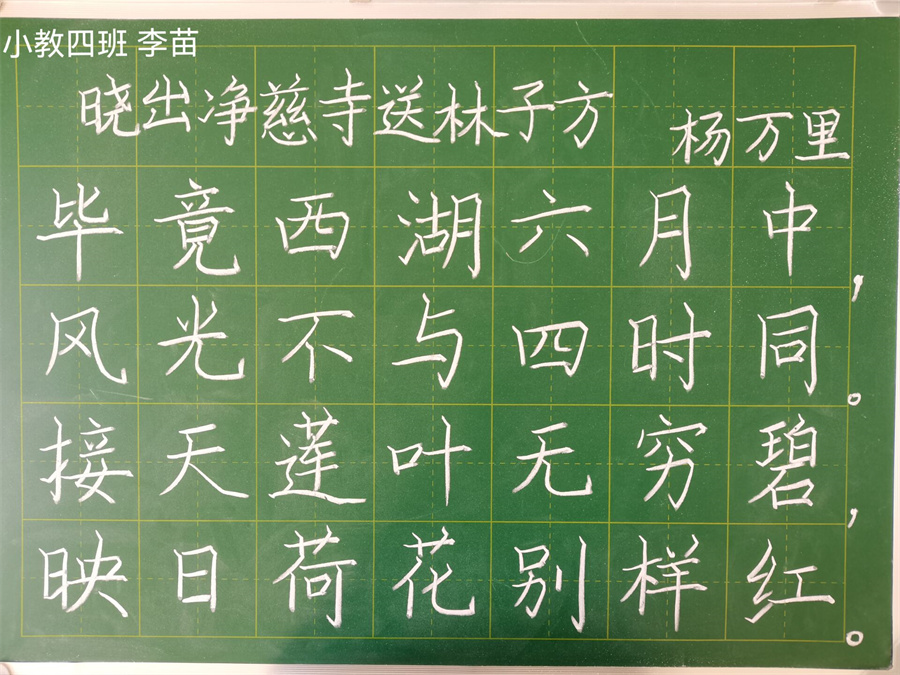 小教四班 李苗
晓出净慈寺送林子方
杨万里
毕竟西湖六月中，
风光不与四时同。
接天莲叶无穷碧，
映日荷花别样红。